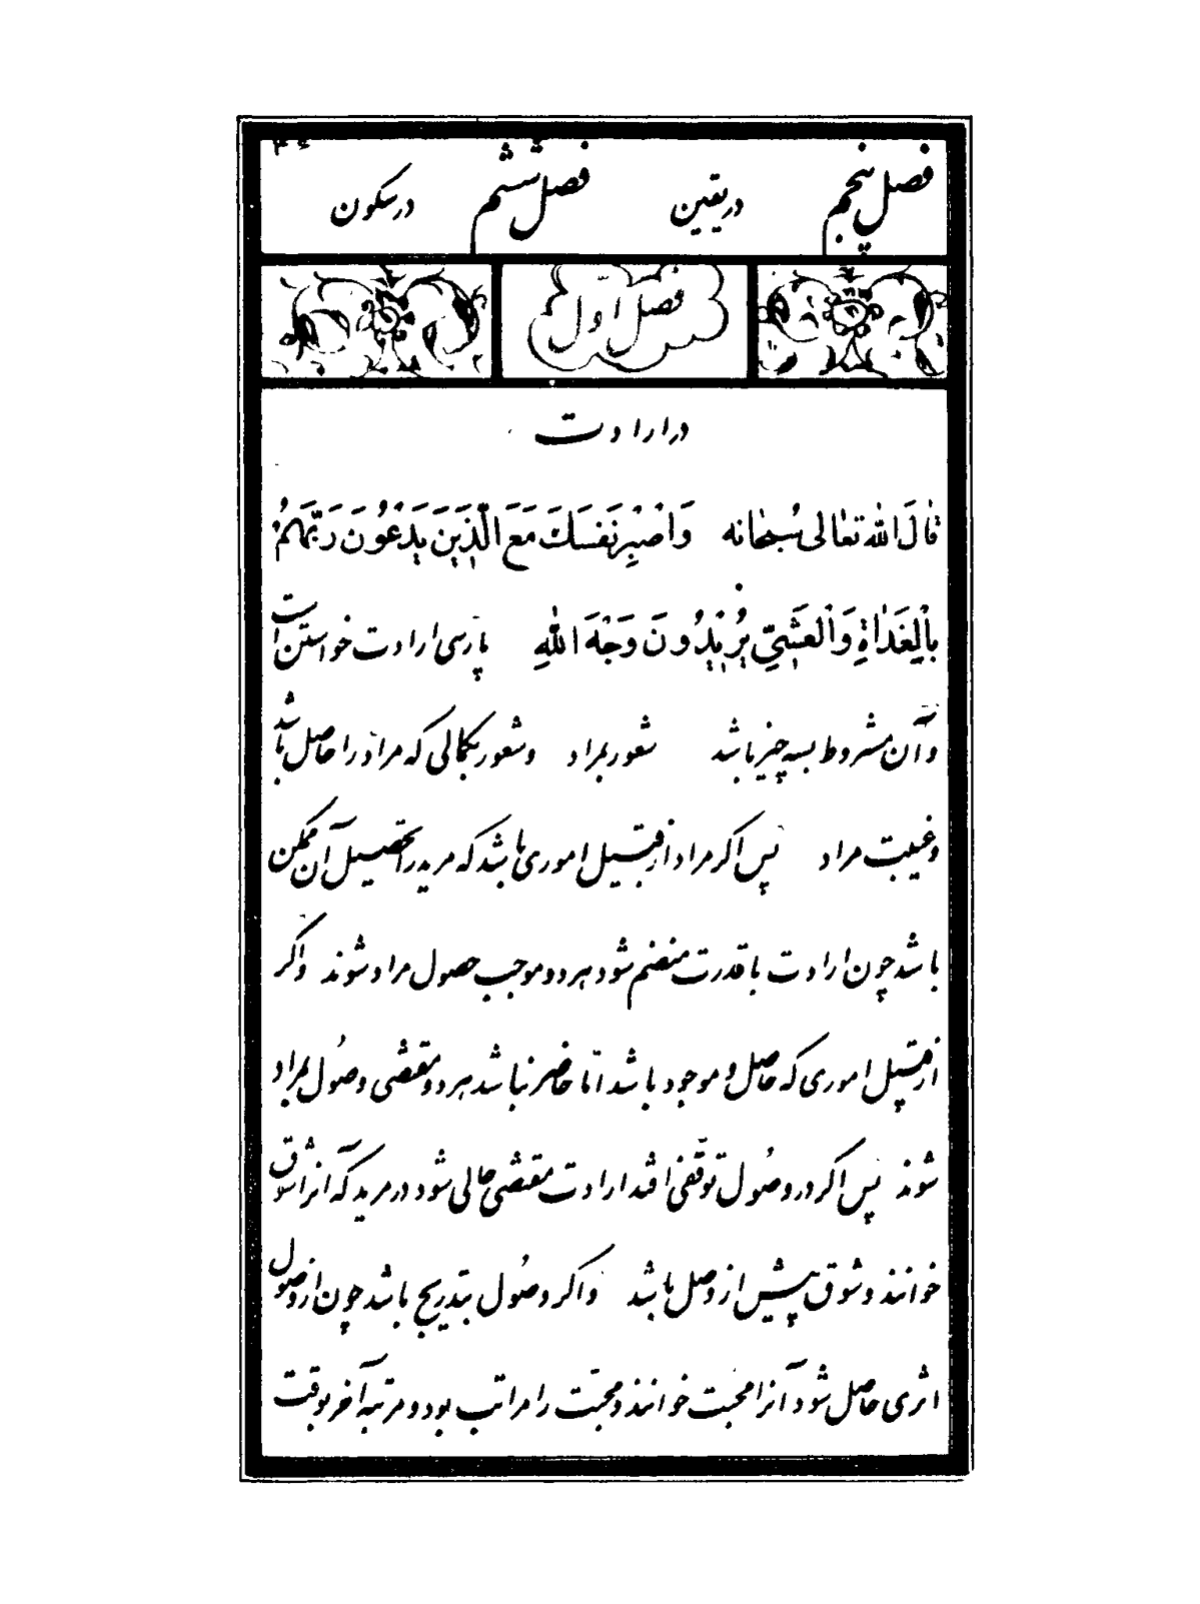 ۳۴
فصل پنجم در یقین فصل ششم در سکون
فصل اوّل
در ارادت
قٰالَ الله تعٰالی سُبحٰانه وَاصْبِرْ نَفسَكَ مَعَ الَّذَینَ یَدْعُونَ رَبَّهُمْ
بِالْغَدٰاةِ وَالْعَشِیِّ یُرٖیدُونَ وَجْهَ اللهِ پارسی ارادت خواستن است
و آن مشروط بسه چیز باشد شعور بمراد و شعور بکمالی که مراد را حاصل باشد
و غیبت مراد پس اگر مراد از قبیل اموری باشد که مرید را تحصیل آن ممکن
باشد چون ارادت با قدرت منضم شود هر دو موجب حصول مراد شوند و اگر
از قبیل اموری که حاصل و موجود باشد امّا حاضر نباشد هر دو مقتضی وصُول بمراد
شوند پس اگر در وصُول توقّفی افتد ارادت مقتضی حالی شود در مرید که آنرا شوق
خوانند و شوق پیش از وصل باشد و اگر وصُول بتدریج باشد چون از وصُول
اثری حاصل شود آنرا محبت خوانند و محبّت را مراتب بود و مرتبه آخر بوقت